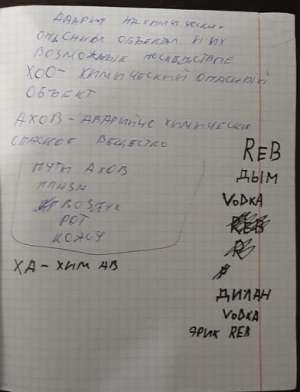 ОПАСНЫМ ОБЪЕКТАМ И ИХ
ВОЗМОЖНЫЕ ПОСЛЕДСТВИЕ
ХОО - ХИМИЧЕСКИЙ ОПАСНЫЙ
ОБЪЕКТ
АХОВ - АВАРИЙНО ХИМИЧЕСКИ
ОПАСНОЕ ВЕЩЕСТВО
ПУТИ АХОВ
ВОЗДУХ
РОТ
КОЖУ
ХА - ХИМ АВ
REB
ДЫМ
VODKA
REB
ДИЛАН
VODKA
ЯРИК REB